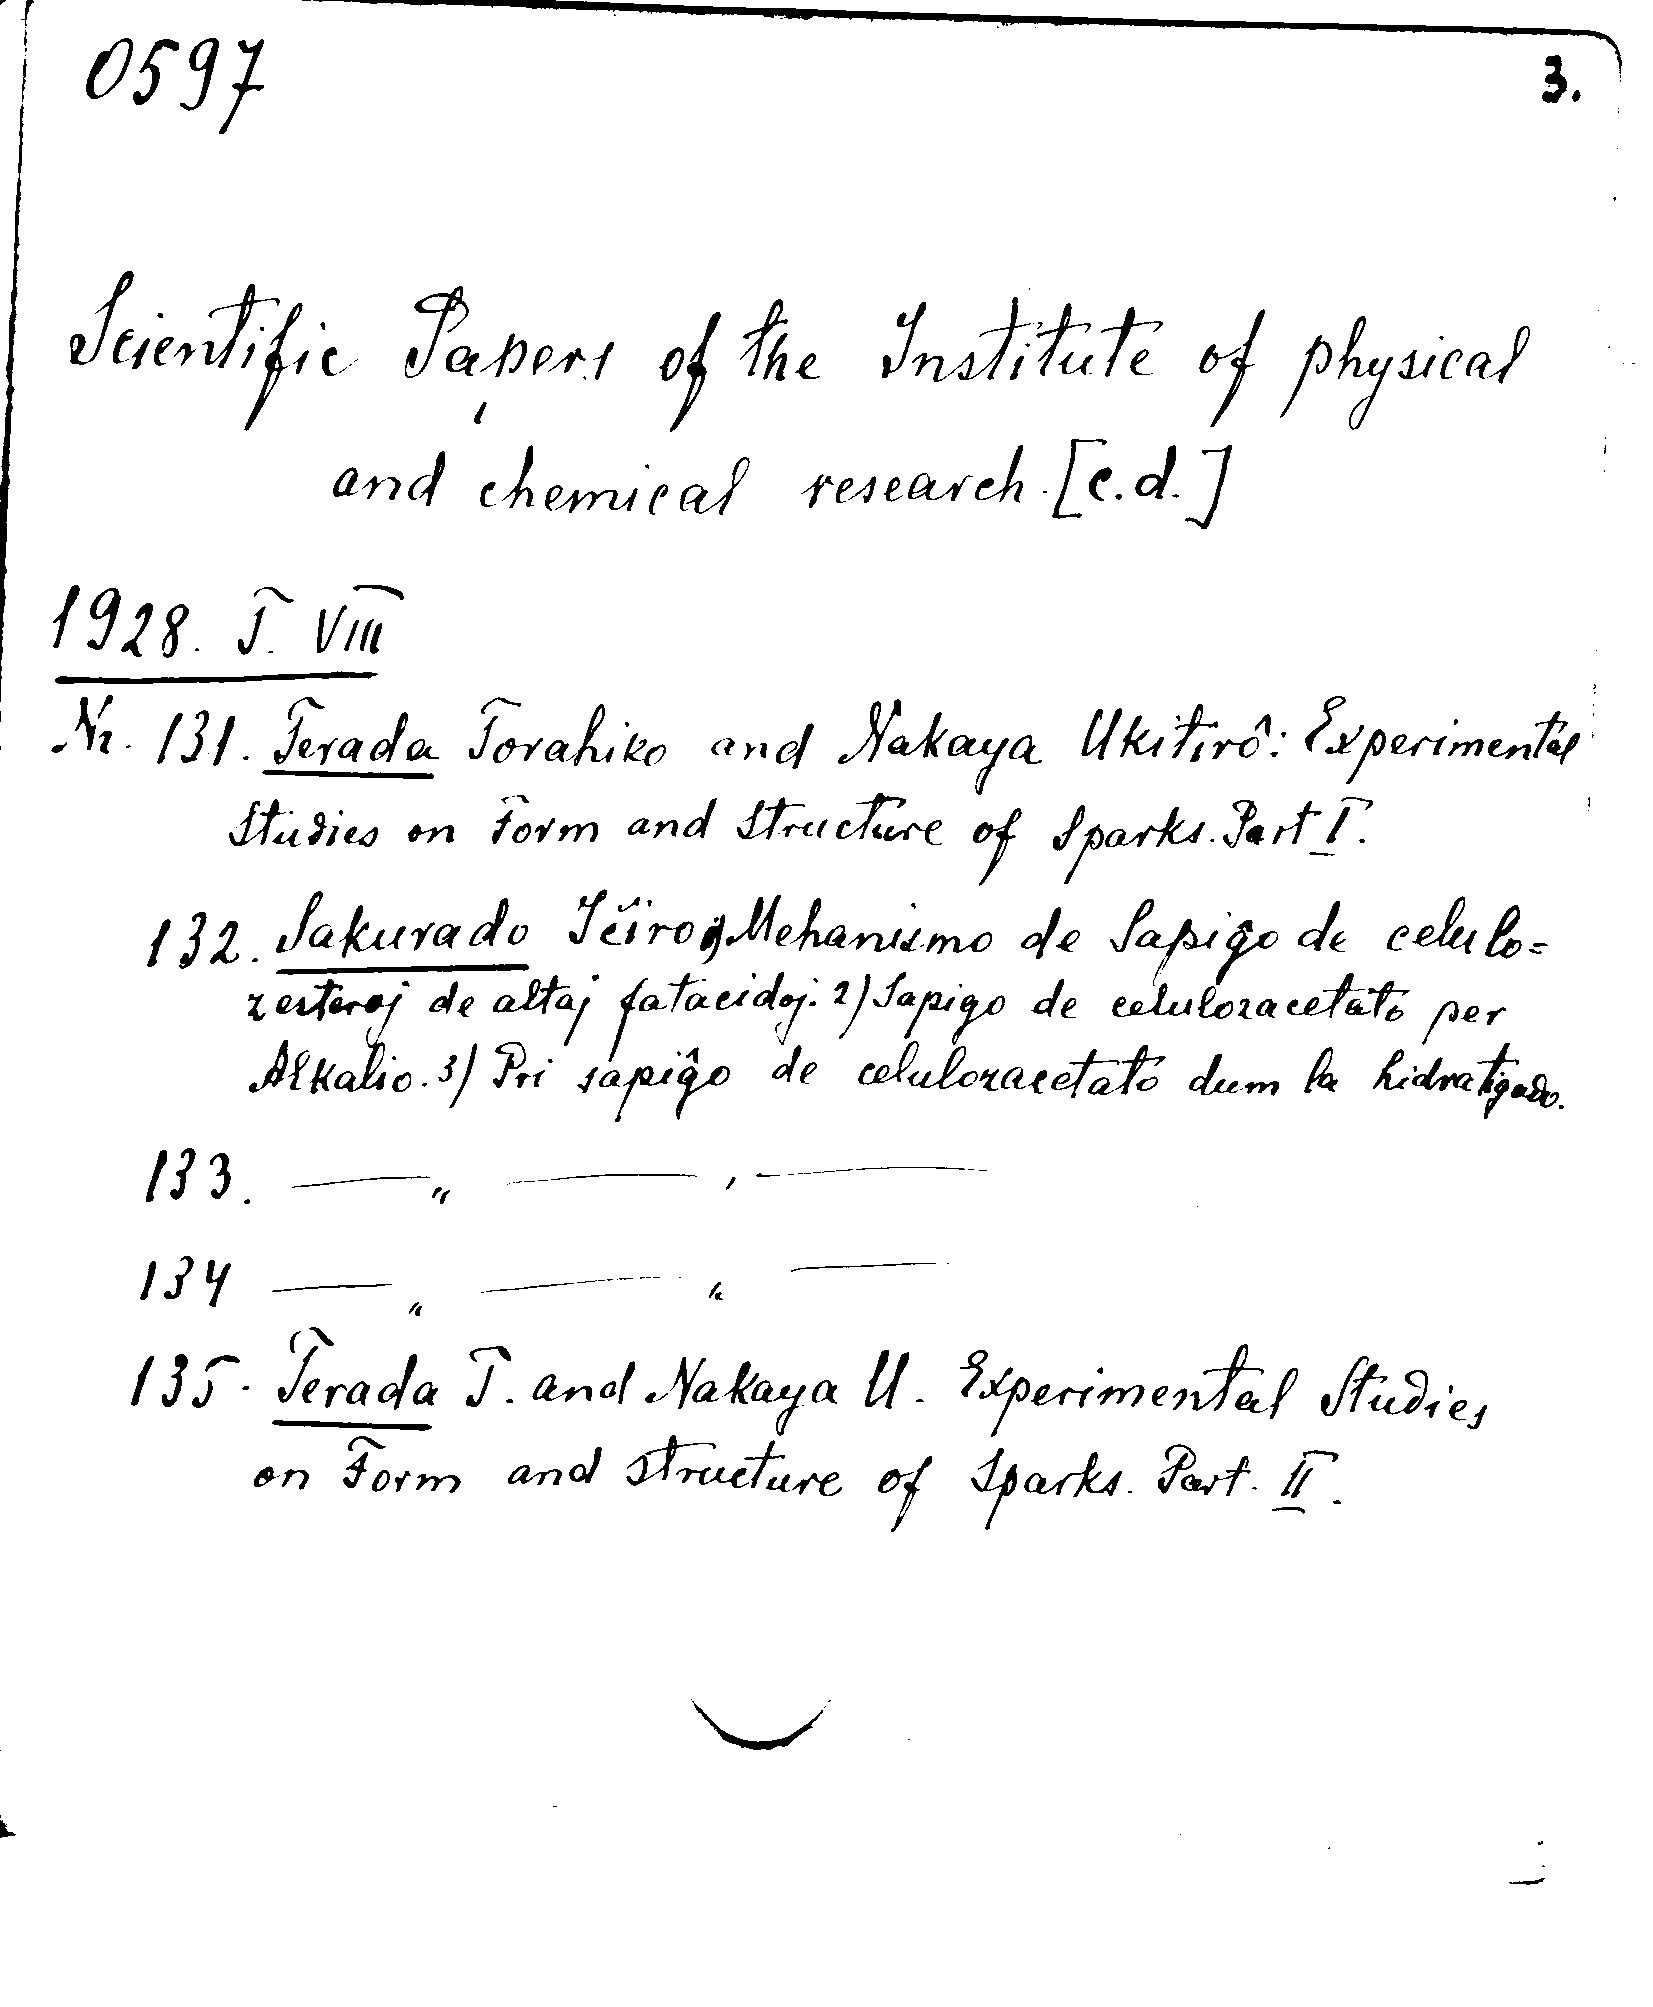 0597
3.
Scientific Papers of the Institute of physical
and chemical research. [c.d.]
1928. T. VIII
Nr. 131. Terada Torahiko and Nakaya Ukitirô: Experimental
Studies on Form and Structure of Sparks. Part I.
132. Sakurado Iĉiro, Mehanismo de Sapiĝo de celulo=
zesteroj de altaj fatacidoj. 2) Sapigo de celulozacetato per
Alkalio. 3) Pri sapiĝo de celulozacetato dum la hidratigado.
133. — „ — , —
134 — „ — „ —
135. Terada T. and Nakaya U. Experimental Studies
on Form and Structure of Sparks. Part. II.